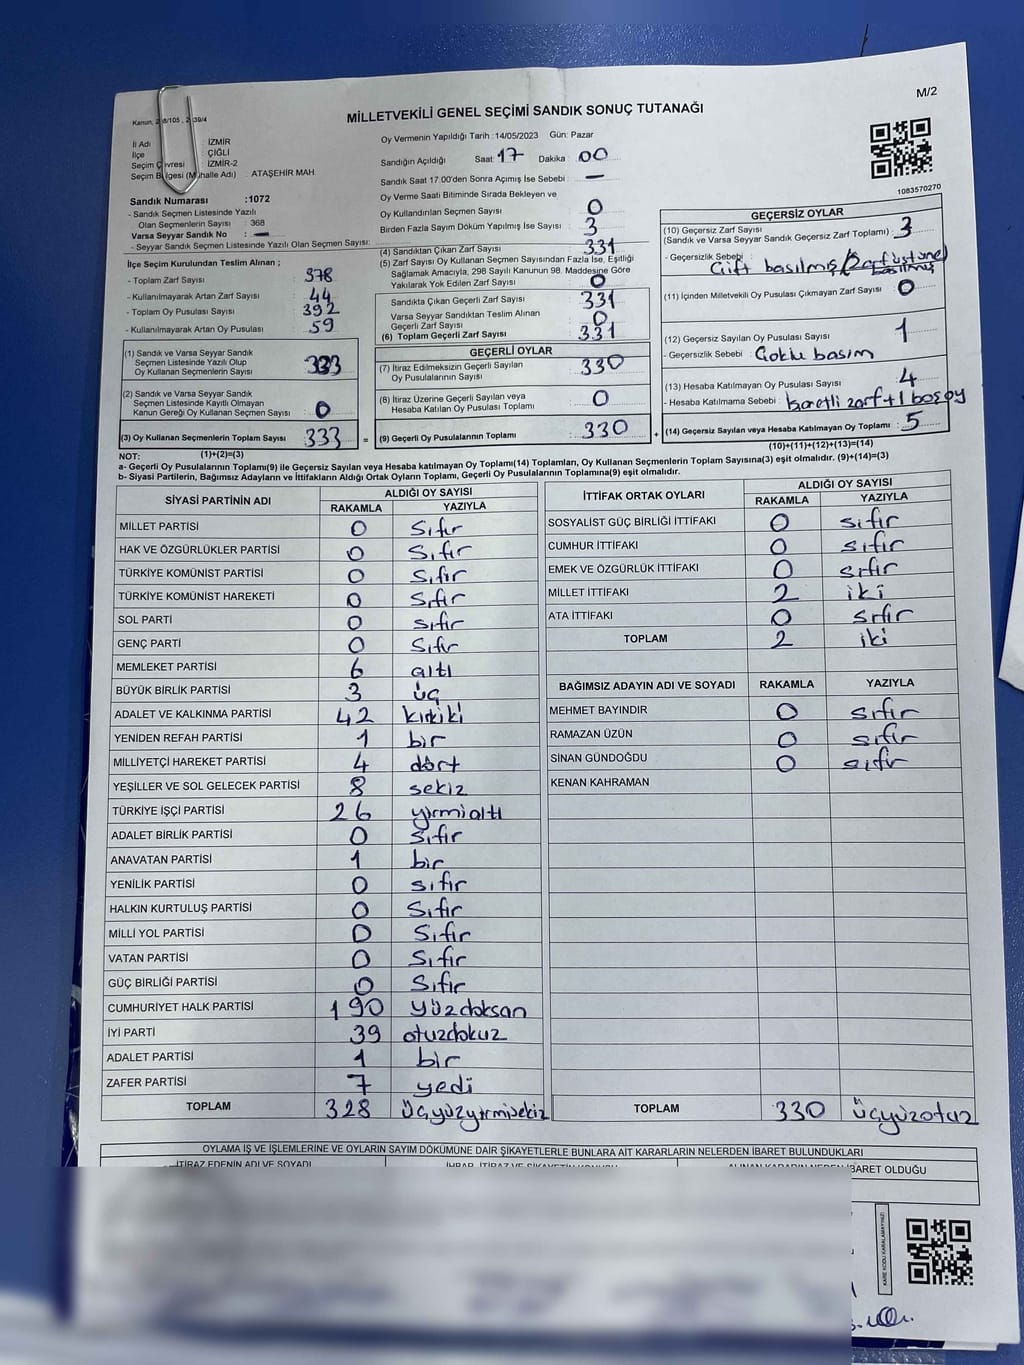 M/2
MİLLETVEKİLİ GENEL SEÇİMİ SANDIK SONUÇ TUTANAĞI
İl Adı : İZMİR
İlçe : ÇİĞLİ
Seçim Çevresi : İZMİR-2
Seçim Bölgesi (Mahalle Adı) : ATAŞEHİR MAH
Sandık Numarası :1072
- Sandık Seçmen Listesinde Yazılı
Olan Seçmenlerin Sayısı : 368
Varsa Seyyar Sandık No : —
- Seyyar Sandık Seçmen Listesinde Yazılı Olan Seçmen Sayısı:
İlçe Seçim Kurulundan Teslim Alınan ;
- Toplam Zarf Sayısı : 378
- Kullanılmayarak Artan Zarf Sayısı : 44
- Toplam Oy Pusulası Sayısı : 392
- Kullanılmayarak Artan Oy Pusulası : 59
(1) Sandık ve Varsa Seyyar Sandık
Seçmen Listesinde Yazılı Olup
Oy Kullanan Seçmenlerin Sayısı : 333
(2) Sandık ve Varsa Seyyar Sandık
Seçmen Listesinde Kayıtlı Olmayan
Kanun Gereği Oy Kullanan Seçmen Sayısı : 0
(3) Oy Kullanan Seçmenlerin Toplam Sayısı : 333 =
(1)+(2)=(3)
Oy Vermenin Yapıldığı Tarih :14/05/2023 Gün: Pazar
Sandığın Açıldığı Saat: 17 Dakika : 00
Sandık Saat 17.00'den Sonra Açımış İse Sebebi : —
Oy Verme Saati Bitiminde Sırada Bekleyen ve
Oy Kullandırılan Seçmen Sayısı : 0
Birden Fazla Sayım Döküm Yapılmış İse Sayısı : 3
(4) Sandıktan Çıkan Zarf Sayısı : 331
(5) Zarf Sayısı Oy Kullanan Seçmen Sayısından Fazla İse, Eşitliği
Sağlamak Amacıyla, 298 Sayılı Kanunun 98. Maddesine Göre
Yakılarak Yok Edilen Zarf Sayısı : 0
Sandıkta Çıkan Geçerli Zarf Sayısı : 331
Varsa Seyyar Sandıktan Teslim Alınan
Geçerli Zarf Sayısı : 0
(6) Toplam Geçerli Zarf Sayısı : 331
GEÇERLİ OYLAR
(7) İtiraz Edilmeksizin Geçerli Sayılan
Oy Pusulalarının Sayısı : 330
(8) İtiraz Üzerine Geçerli Sayılan veya
Hesaba Katılan Oy Pusulası Toplamı : 0
(9) Geçerli Oy Pusulalarının Toplamı : 330 +
1083570270
GEÇERSİZ OYLAR
(10) Geçersiz Zarf Sayısı
(Sandık ve Varsa Seyyar Sandık Geçersiz Zarf Toplamı) : 3
- Geçersizlik Sebebi :
Çift basılmış (zarf üstüne) basılmış
(11) İçinden Milletvekili Oy Pusulası Çıkmayan Zarf Sayısı : 0
(12) Geçersiz Sayılan Oy Pusulası Sayısı : 1
- Geçersizlik Sebebi : Çoklu basım
(13) Hesaba Katılmayan Oy Pusulası Sayısı : 4
- Hesaba Katılmama Sebebi : İşaretli zarf+1 boş oy
(14) Geçersiz Sayılan veya Hesaba Katılmayan Oy Toplamı : 5
(10)+(11)+(12)+(13)=(14)
NOT:
a- Geçerli Oy Pusulalarının Toplamı(9) ile Geçersiz Sayılan veya Hesaba katılmayan Oy Toplamı(14) Toplamları, Oy Kullanan Seçmenlerin Toplam Sayısına(3) eşit olmalıdır. (9)+(14)=(3)
b- Siyasi Partilerin, Bağımsız Adayların ve İttifakların Aldığı Ortak Oyların Toplamı, Geçerli Oy Pusulalarının Toplamına(9) eşit olmalıdır.
SİYASİ PARTİNİN ADI ALDIĞI OY SAYISI
RAKAMLA YAZIYLA
MİLLET PARTİSİ 0 Sıfır
HAK VE ÖZGÜRLÜKLER PARTİSİ 0 Sıfır
TÜRKİYE KOMÜNİST PARTİSİ 0 Sıfır
TÜRKİYE KOMÜNİST HAREKETİ 0 Sıfır
SOL PARTİ 0 sıfır
GENÇ PARTİ 0 Sıfır
MEMLEKET PARTİSİ 6 altı
BÜYÜK BİRLİK PARTİSİ 3 üç
ADALET VE KALKINMA PARTİSİ 42 kırkiki
YENİDEN REFAH PARTİSİ 1 bir
MİLLİYETÇİ HAREKET PARTİSİ 4 dört
YEŞİLLER VE SOL GELECEK PARTİSİ 8 sekiz
TÜRKİYE İŞÇİ PARTİSİ 26 yirmialtı
ADALET BİRLİK PARTİSİ 0 sıfır
ANAVATAN PARTİSİ 1 bir
YENİLİK PARTİSİ 0 sıfır
HALKIN KURTULUŞ PARTİSİ 0 Sıfır
MİLLİ YOL PARTİSİ 0 Sıfır
VATAN PARTİSİ 0 Sıfır
GÜÇ BİRLİĞİ PARTİSİ 0 Sıfır
CUMHURİYET HALK PARTİSİ 190 yüzdoksan
İYİ PARTİ 39 otuzdokuz
ADALET PARTİSİ 1 bir
ZAFER PARTİSİ 7 yedi
TOPLAM 328 üçyüzyirmisekiz
İTTİFAK ORTAK OYLARI ALDIĞI OY SAYISI
RAKAMLA YAZIYLA
SOSYALİST GÜÇ BİRLİĞİ İTTİFAKI 0 sıfır
CUMHUR İTTİFAKI 0 sıfır
EMEK VE ÖZGÜRLÜK İTTİFAKI 0 sıfır
MİLLET İTTİFAKI 2 iki
ATA İTTİFAKI 0 sıfır
TOPLAM 2 iki
BAĞIMSIZ ADAYIN ADI VE SOYADI RAKAMLA YAZIYLA
MEHMET BAYINDIR 0 sıfır
RAMAZAN ÜZÜN 0 sıfır
SİNAN GÜNDOĞDU 0 sıfır
KENAN KAHRAMAN
TOPLAM 330 üçyüzotuz
OYLAMA İŞ VE İŞLEMLERİNE VE OYLARIN SAYIM DÖKÜMÜNE DAİR ŞİKAYETLERLE BUNLARA AİT KARARLARIN NELERDEN İBARET BULUNDUKLARI
İTİRAZ EDENİN ADI VE SOYADI
İBARET OLDUĞU